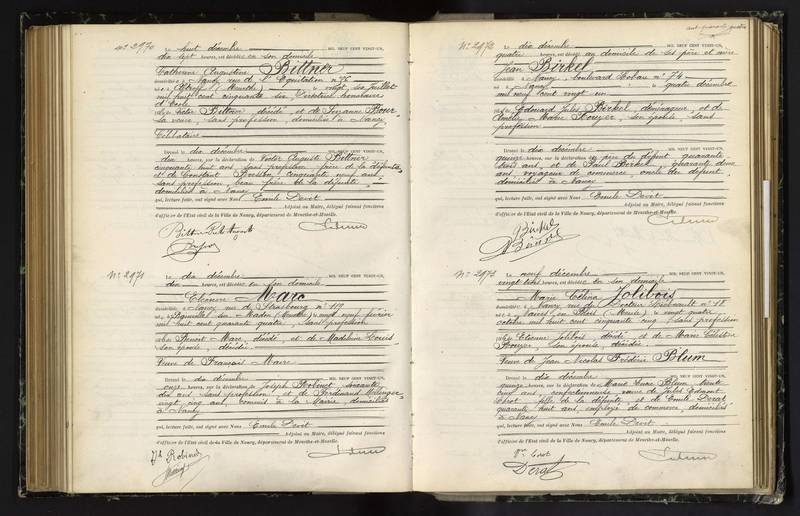 No 2970 Le huit décembre MIL NEUF CENT VINGT-UN,
dix sept heures, est décédée en son domicile
Catherine Augustine Bittner
domiciliée à Nancy rue de l'Equitation no 76
née à (Meurthe) le vingt six juillet
mil huit cent cinquante six, honoraire
d'école
fille de Victor Bittner, décédé, et de Suzanne
sa veuve, sans profession, domiciliée à Nancy,
Célibataire
Dressé le dix décembre MIL NEUF CENT VINGT-UN,
dix heures, sur la déclaration de Victor Auguste Bittner
cinquante huit ans, sans profession, frère de la défunte,
et de Constant cinquante neuf ans,
sans profession, beau frère de la défunte,
domiciliés à Nancy
qui, lecture faite, ont signé avec Nous Emile Devit
Adjoint au Maire, délégué faisant fonctions
d'officier de l'État civil de la Ville de Nancy, département de Meurthe-et-Moselle.
No 2971 Le dix décembre MIL NEUF CENT VINGT-UN,
dix heures, est décédée en son domicile
Eléonore Marc
domiciliée à Nancy rue de Strasbourg no 119
née à (Meurthe) le vingt neuf février
mil huit cent quarante quatre, sans profession
fille de Benoit Marc, décédé, et de Madeleine Louis
son épouse, décédée.
Veuve de François Marc
Dressé le dix décembre MIL NEUF CENT VINGT-UN,
onze heures, sur la déclaration de Joseph Robinet soixante
dix ans, sans profession, et de Ferdinand
vingt cinq ans, commis à la Mairie, domiciliés
à Nancy
qui, lecture faite, ont signé avec Nous Emile Devit
Adjoint au Maire, délégué faisant fonctions
d'officier de l'État civil de la Ville de Nancy, département de Meurthe-et-Moselle.
Jh Robinet
quarante quatre
No 2972 Le dix décembre MIL NEUF CENT VINGT-UN,
quatre heures, est décédé au domicile de ses père et mère
Jean Birkel
domicilié à Nancy, boulevard Lobau no 74
né à Nancy le quatre décembre
mil neuf cent vingt un
fils de Edouard Jules Birkel, déménageur, et de
Amélie Marie son épouse, sans
profession
Dressé le dix décembre MIL NEUF CENT VINGT-UN,
quinze heures, sur la déclaration du père du défunt, quarante
trois ans, et de Paul Birkel, quarante deux
ans, voyageur de commerce, oncle du défunt,
domiciliés à Nancy
qui, lecture faite, ont signé avec Nous Emile Devit
Adjoint au Maire, délégué faisant fonctions
d'officier de l'État civil de la Ville de Nancy, département de Meurthe-et-Moselle.
Birkel
No 2973 Le neuf décembre MIL NEUF CENT VINGT-UN,
vingt trois heures, est décédée en son domicile
Marie Célina Jolibois
domiciliée à Nancy rue du Docteur Liébeault no 18
née à en Blois (Meuse) le vingt quatre
octobre mil huit cent cinquante cinq, sans profession
fille de Etienne Jolibois décédé et de Marie Célestine
son épouse, décédée.
Veuve de Jean Nicolas Frédéric Blum
Dressé le dix décembre MIL NEUF CENT VINGT-UN,
quinze heures, sur la déclaration de Blum, trente
cinq ans, veuve de Jules Edmond
fille de la défunte et de Emile Derat
quarante huit ans, employé de commerce, domiciliés
à Nancy
qui, lecture faite, ont signé avec Nous Emile Devit
Adjoint au Maire, délégué faisant fonctions
d'officier de l'État civil de la Ville de Nancy, département de Meurthe-et-Moselle.
Derat